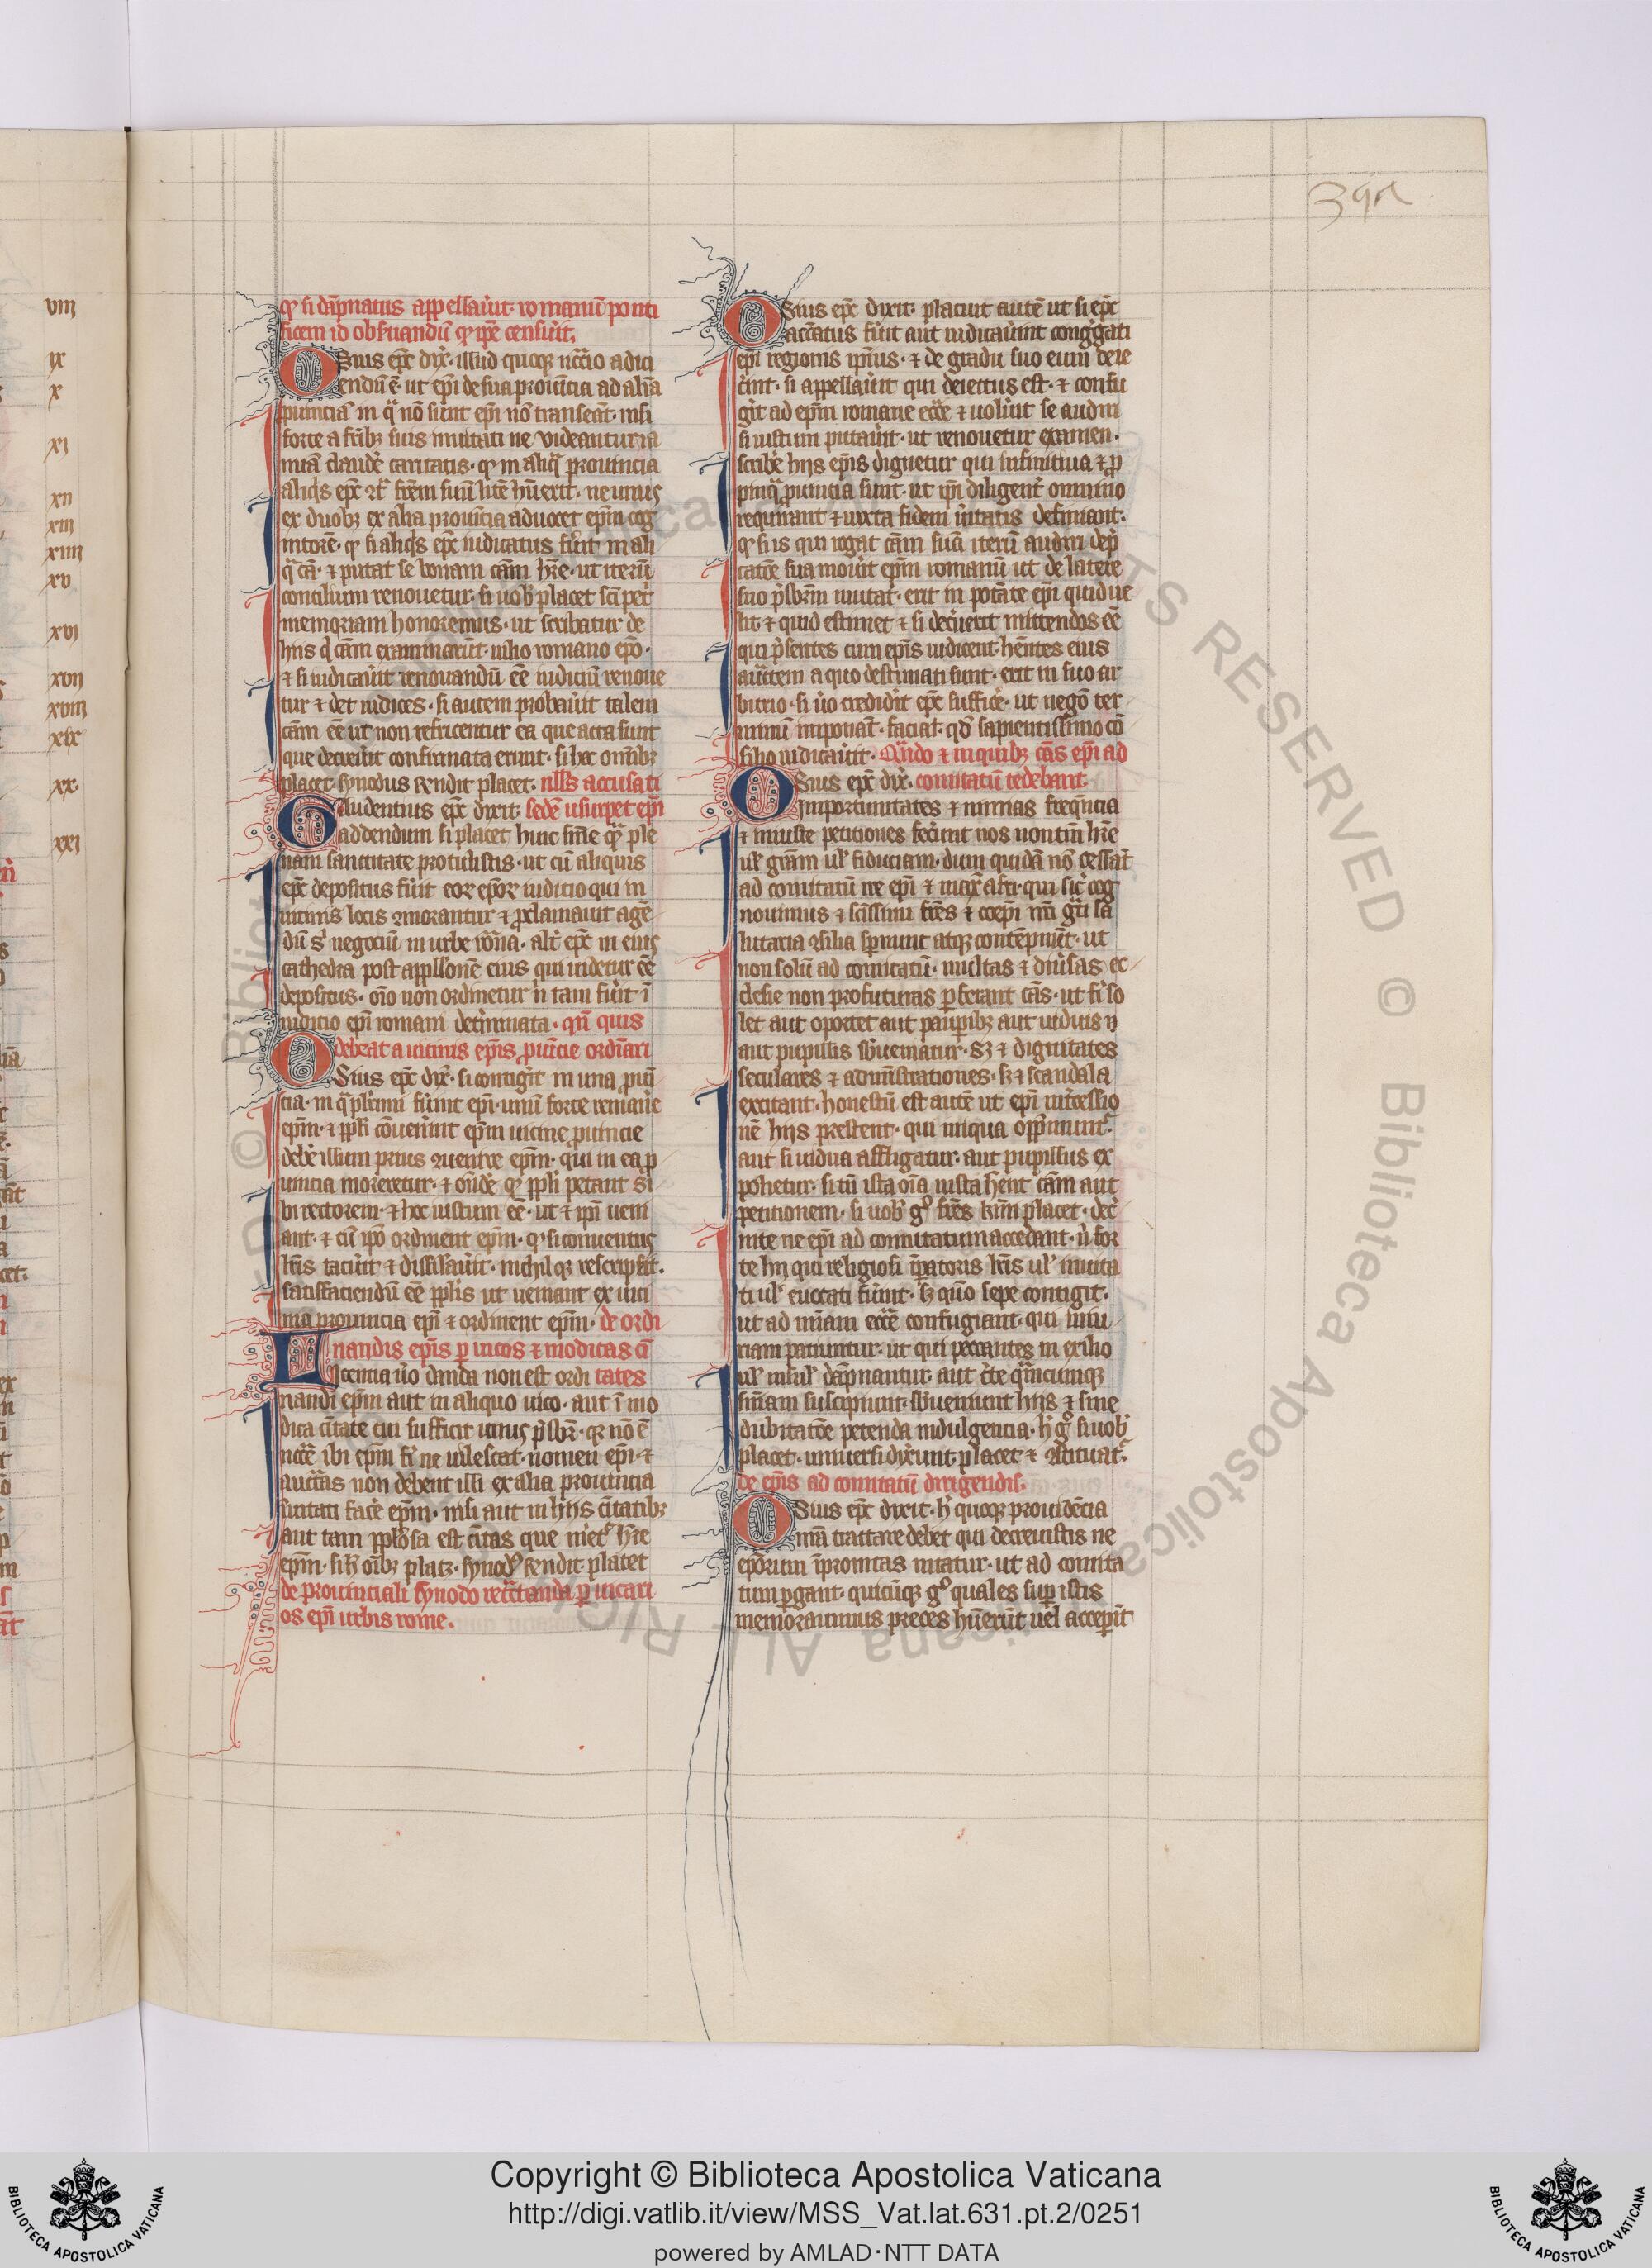 viii
ix
x
xi
xii
xiii
xiiii
xv
xvi
xvii
xviii
xix
xx
xxi
39r
qꝫ si dãpnatus appellaůit romanũ ponti
ficem id obẜuandũ qꝫ ipẽ censuit.
Osius ep̃c dix̃ illud quoqꝫ nc̃cio adici
endũ ẽ ut ep̃i de sua prouincia ad aliã
puincĩa in q̃ nõ sunt ep̃i nõ transeãt nisi
forte a frĩbꝫ suis inuitati ne videantur ia
nuã claudẽ caritatis qꝫ in aliq̃ prouincia
aliq̇s ep̃c ↄt̃ frẽm suũ litẽ hũerit ne unus
ex duobꝫ ex alia prouĩcia aduocet ep̃m cog
nitorẽ qꝫ si aliq̇s ep̃c iudicatus fůit in ali
q̃ cã ⁊ putat se bonam cãm hr̃e ut iterũ
concilium renouetur si uob̃ placet sc̃i pet̃
memoriam honoremus ut scribatur de
hiis q̇ cãm examinarũt iulio romano ep̃o
⁊ si iudicaůit renouandũ ẽẽ iudiciũ renoue
tur ⁊ det iudices si autem probaůit talem
cãm ẽẽ ut non refricentur ea que acta sunt
que decreůit confirmata erunt si hoc om̃ibꝫ
placet synodus rñdit placet nlls̃ accusati
Gaudentius ep̃c dixit sedẽ usurpet ep̃i
addendum si placet huic sñie qm̃ ple
nam sanctitate protulistis ut cũ aliquis
ep̃c depositus fůit eoꝝ ep̃oꝝ iudicio qui in
uicinis locis ↄmorantur ⁊ ꝓclamauit agẽ
dũ s̃ negociũ in urbe rom̃a alt̃ ep̃c in eius
cathedra post appllonẽ eius qui uidetur ẽẽ
depositus oĩo non ordinetur ñ cam fůit ĩ
iudicio ep̃i romani det̃minata qñ quis
debeat a uicinis ep̃is ꝓuĩcie ordĩari
Osius ep̃c dix̃ si contigit in una ꝓuĩ
cia in q̃ pl̃imi fůint ep̃i unũ forte remanẽ
ep̃m ⁊ ppl̃i cõuen̾int ep̃m uicine ꝓuincie
debẽ illum prius ↄuenire ep̃m qui in ea ꝓ
uincia moretur ⁊ oñdẽ qꝫ ppl̃i petant si
bi rectorem ⁊ hoc iustum ẽẽ ut ⁊ ip̃i ueni
ant ⁊ cũ ip̃o ordinent ep̃m qꝫ si conuentus
lr̃is tacůit ⁊ dissil̃aůit nichilqꝫ rescripẜit
satisfaciendũ ẽẽ ppl̃is ut ueniant ex uici
na prouincia ep̃i ⁊ ordinent ep̃m de ordi
nandis ep̃is ꝑ uicos ⁊ modicas ci
Licentia ůo danda non est ordi tates
nandi ep̃m aut in aliquo uico aut ĩ mo
dica ciũtate cui sufficit unus p̃sbr̃ qꝛ nõ ẽ
nc̃cẽ ibi ep̃m fi̾ ne uilescat nomen ep̃i ⁊
auctãs non debent illi ex alia prouincia
inuitati facẽ ep̃m nisi aut in hiis ciũtatibꝫ
aut tam pplõsa est ciũtas que me̾et̃ hr̃e
ep̃m si h̾ oĩbꝫ placꝫ synodꝰ rñdit placet
de prouinciali synodo ret̃ctanda ꝑ uicari
os ep̃i urbis rome.
Osius ep̃c dixit placuit autẽ ut si ep̃c
accũatus fůit aut iudicaůint cong̾gati
ep̃i regionis ip̃ius ⁊ de gradu suo eum deie
c̾int si appellaůit qui deiectus est ⁊ confu
git̾ ad ep̃m romane ecc̃e ⁊ uolůit se audiri
si iustum putaůit ut renouetur examen
scribẽ hiis ep̃is dignetur qui in finitiua ⁊ ꝓ
pinq̃ ꝓuincia sunt ut ip̃i diligent̾ omnino
requirant ⁊ iuxta fidem ůitatis definiant
qꝫ si is qui rogat cãm suã iterũ audiri dep̃
catõe sua moůit ep̃m romanũ ut de latere
suo p̃sbr̃m mittat erit in potãte ep̃i quid ue
lit ⁊ quid estimet ⁊ si dec̾uerit mittendos ẽẽ
qui p̃sentes cum ep̃is iudicent hẽntes eius
auc̃tem a quo destinati sunt erit in suo ar
bitrio si ůo credidit̾ ep̃c sufficẽ ut negõ ter
minũ imponãt faciat qd̃ sapientissimo cõ
silio iudicaůit Qũdo ⁊ in quibꝫ cãs ep̃i ad
Osius ep̃c dix̃ comitatũ debant
importunitates ⁊ nimias freq̃ncia
⁊ iniuste petitiones fec̾unt nos non tm̃ hr̃e
ul̾ gr̃am ul̾ fiduciam dum quidã nõ cessãt
ad comitatũ ire ep̃i ⁊ max̃ afri qui sic̾ cog
nouimus ⁊ sc̃issimi fr̃es ⁊ coep̃i nr̃i gr̃ti sa
lutaria ↄsilia sp̃nunt atqꝫ contẽpnũt ut
non solũ ad comitatũ multas ⁊ diůsas ec
clesie non profuturas ꝑferant cãs ut fi̾ so
let aut oportet aut paupibꝫ aut uiduis
aut pupillis sb̾ueniatur Sꝫ ⁊ dignitates
seculares ⁊ admĩstrationes sꝫ ⁊ scandala
excitant honestũ est autẽ ut ep̃i int̾cessio
nẽ hiis prestent qui iniqua opp̃munt̃
aut si uidua affligatur aut pupillus ex
polietur si tñ ista oĩa iusta hẽnt cãm aut
petitionem si uob̾ gͦ fr̃es kr̃mi placet dec̾
nite ne ep̃i ad comitatum accedant ñ for
te hij qui religiosi ĩp̃atoris lr̃is ul̾ inuita
ti ul̾ euocati fůint sꝫ qm̃o sepe contigit
ut ad mĩam ecc̃e confugiant qui iniu
riam patiuntur ut qui peccantes in exilio
ul̾ insul̾ dãpnantur aut c̾te q̃mcumqꝫ
sñiam suscipiunt sb̾uenient hiis ⁊ sine
dubitatõe petenda indulgencia h̾ gͦ si uob̾
placet uniuersi dix̾unt placet ⁊ ↄstituat̃
de ep̃is ad comitatũ dirigendis.
Osius ep̃c dixit h̾ quoqꝫ prouidẽcia
nr̃a tractare debet qui decreuistis ne
ep̃orum ĩprobitas nitatur ut ad comita
tum ꝑgant quicũqꝫ gͦ quales suꝑ istis
memorauimus preces hũerũt uel acceꝑit̾
Copyright © Biblioteca Apostolica Vaticana
http://digi.vatlib.it/view/MSS_Vat.lat.631.pt.2/0251
powered by AMLAD·NTT DATA
BIBLIOTECA APOSTOLICA VATICANA
BIBLIOTECA APOSTOLICA VATICANA